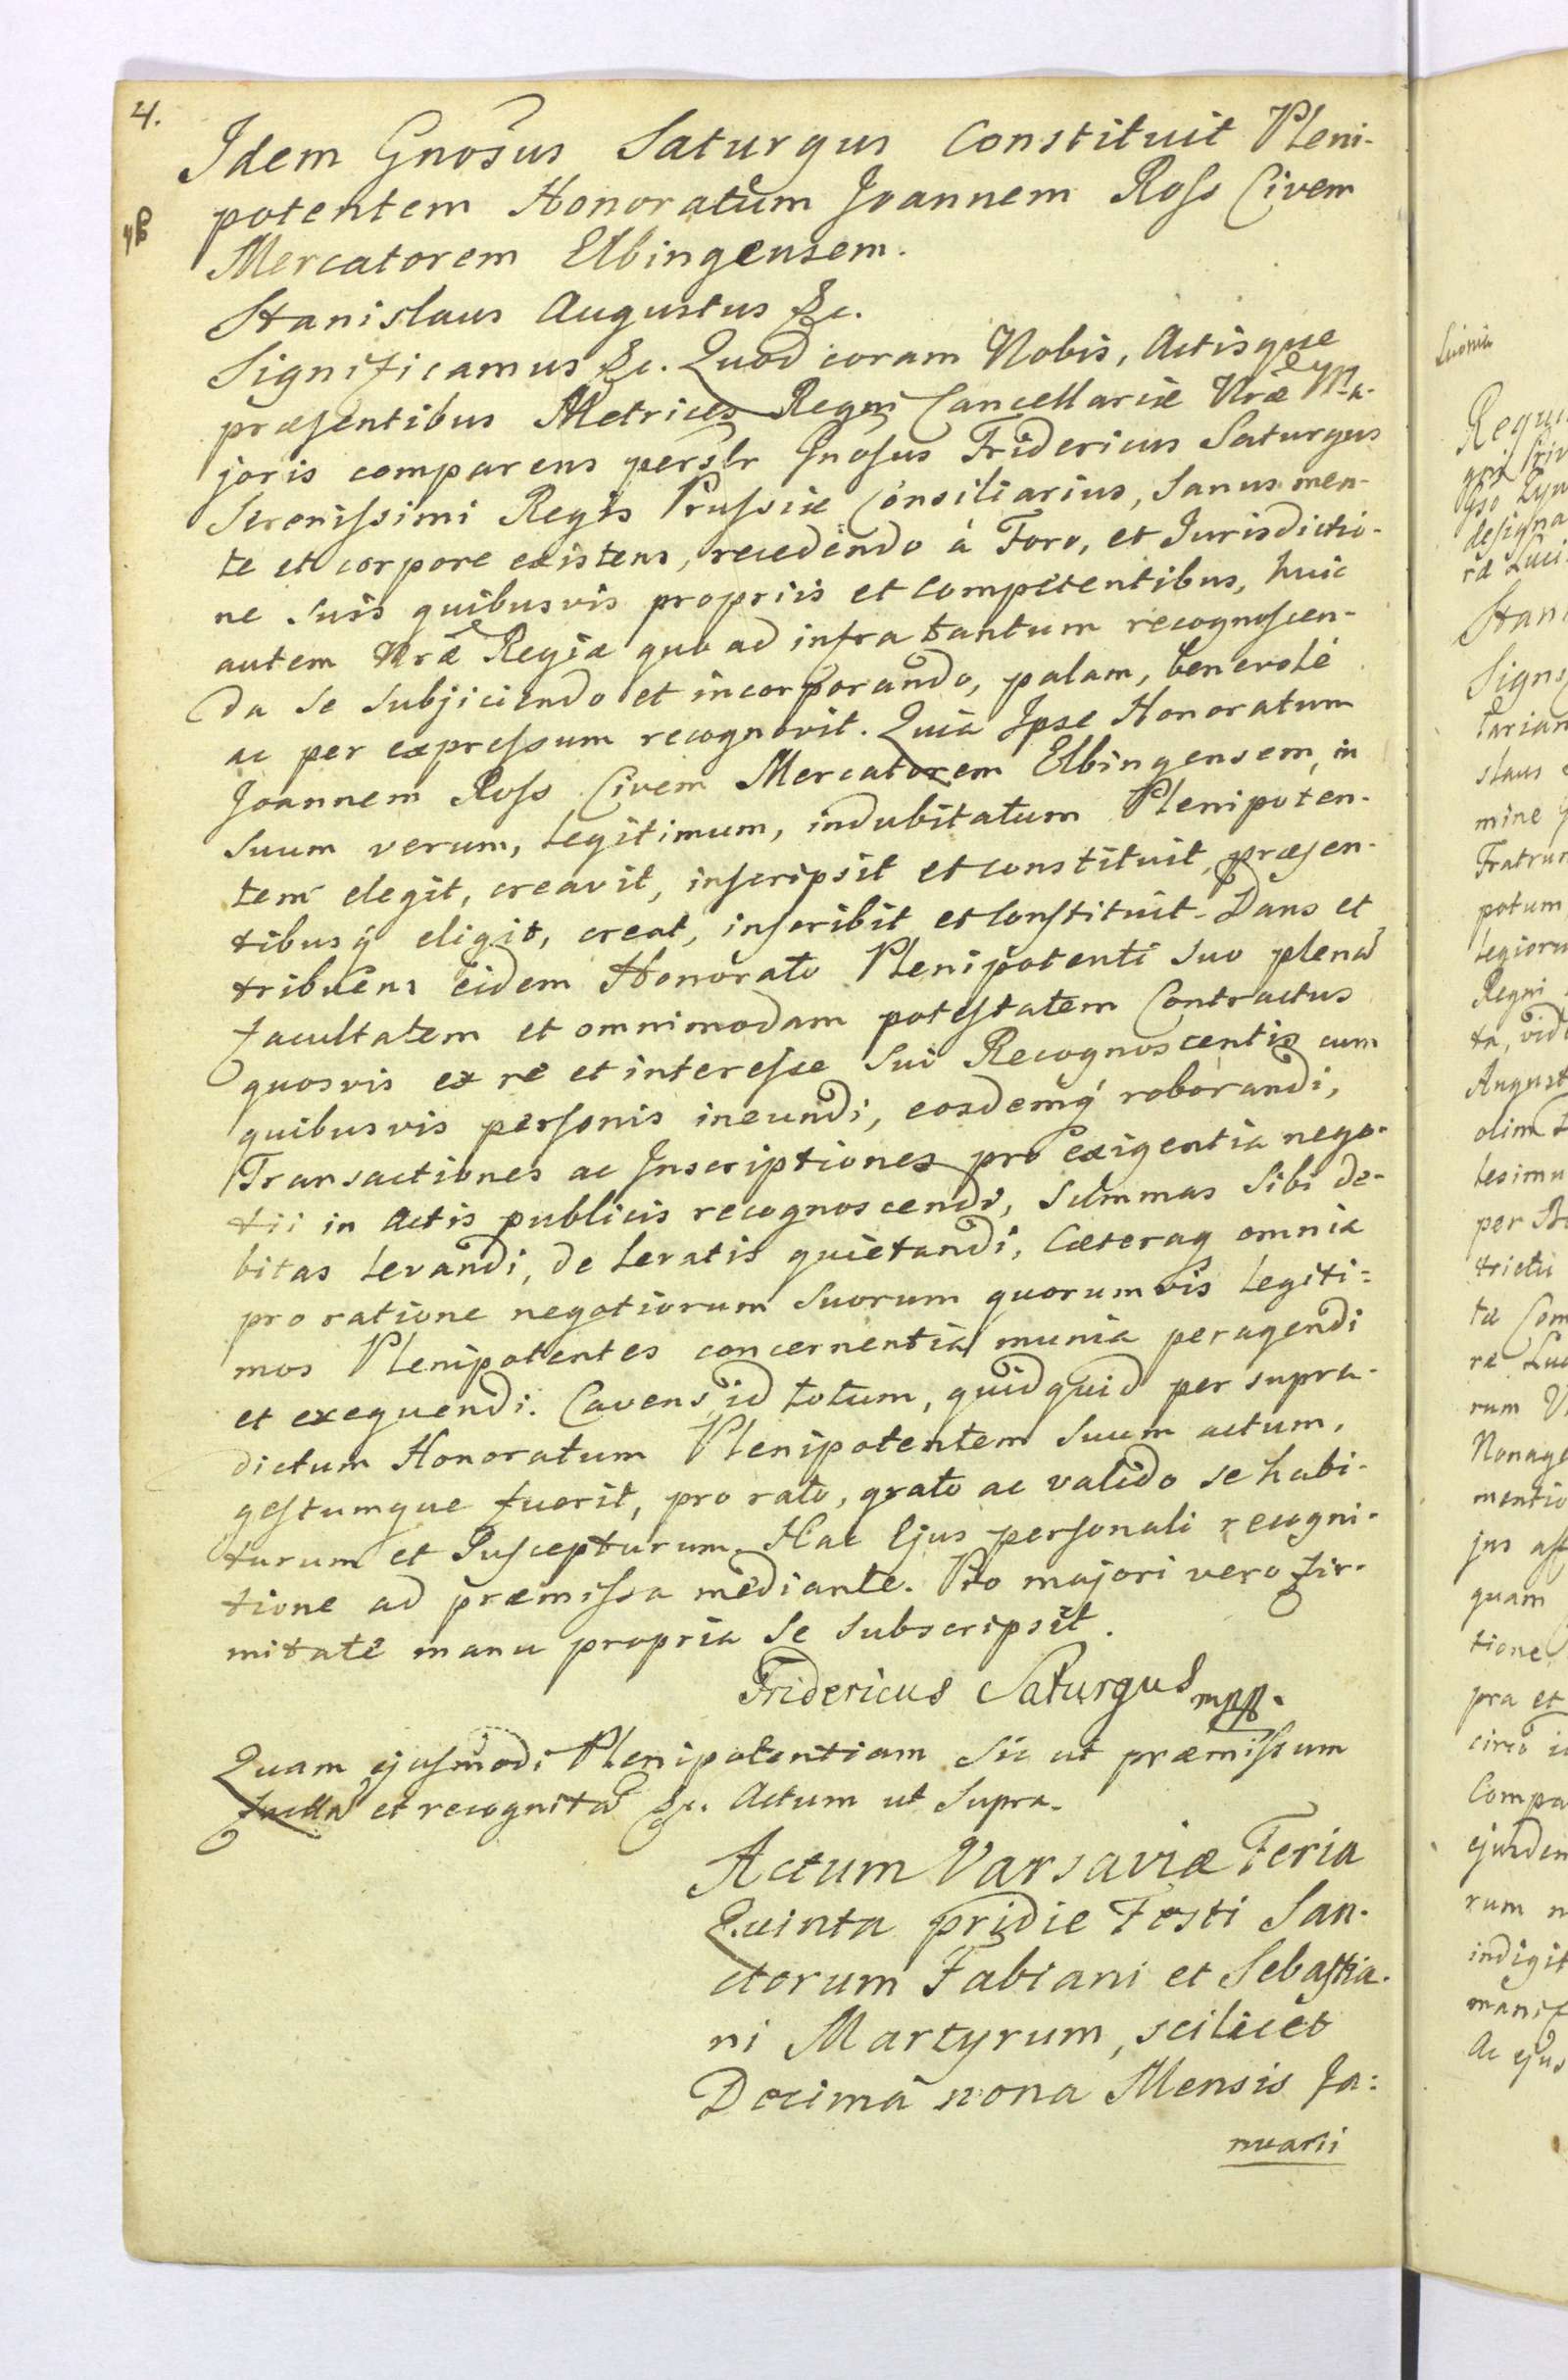 4.
Idem Gnosus Saturgus Constituit Pleni-
potentem Honoratum Joannem Ross Civem
Mercatorem Elbingensem.
Stanislaus Augustus &c.
Significamus &c. Quod coram Nobis, Actisque
præsentibus Metrices Regni Cancellariæ Nræ Ma-
joris comparens persłr Gnosus Fridericus Saturgus
Serenissimi Regis Prussiæ Consiliarius, Sanus men-
te et corpore existens, recedendo à Foro, et Jurisdictio-
ne suis quibusvis propriis et competentibus, huic
autem Nræ Regiæ quo ad infra tantum recognoscen-
da se subjiciendo et incorporando, palam, benevolè
ac per expressum recognovit. Quia Ipse Honoratum
Joannem Ross Civem Mercatorem Elbingensem, in
suum verum, legitimum, indubitatum Plenipoten-
tem elegit, creavit, inscripsit et constituit, præsen-
tibusq́ eligit, creat, inscribit et constituit. Dans et
tribuens eidem Honorato Plenipotenti suo plenã
facultatem et omnimodam potestatem Contractus
quosvis ex re et interesse sui Recognoscentis cum
quibusvis personis ineundi, eosdemq́ roborandi,
Transactiones ac Inscriptiones pro exigentia nego-
tii in Actis publicis recognoscendi, Summas sibi de-
bitas levandi, de levatis quietandi, Cæteraq omnia
pro ratione negotiorum suorum quorumvis legiti=
mos Plenipotentes concernentia munia peragendi
et exequendi. Cavens id totum, quidquid per supra-
dictum Honoratum Plenipotentem suum actum,
gestumque fuerit, pro rato, grato ac valido se habi-
turum et suscepturum. Hac Ejus personali recogni-
tione ad præmissa mediante. Pro majori vero fir-
mitate manu propria se subscripsit.
Fridericus Saturgus mpp.
Quam ejusmodi Plenipotentiam sic ut præmissum
factã et recognitã &c. Actum ut Supra.
Actum Varsaviæ Feria
Quinta pridie Festi San-
ctorum Fabiani et Sebastia-
ni Martyrum, scilicet
Decima nona Mensis Ja:
nuarii